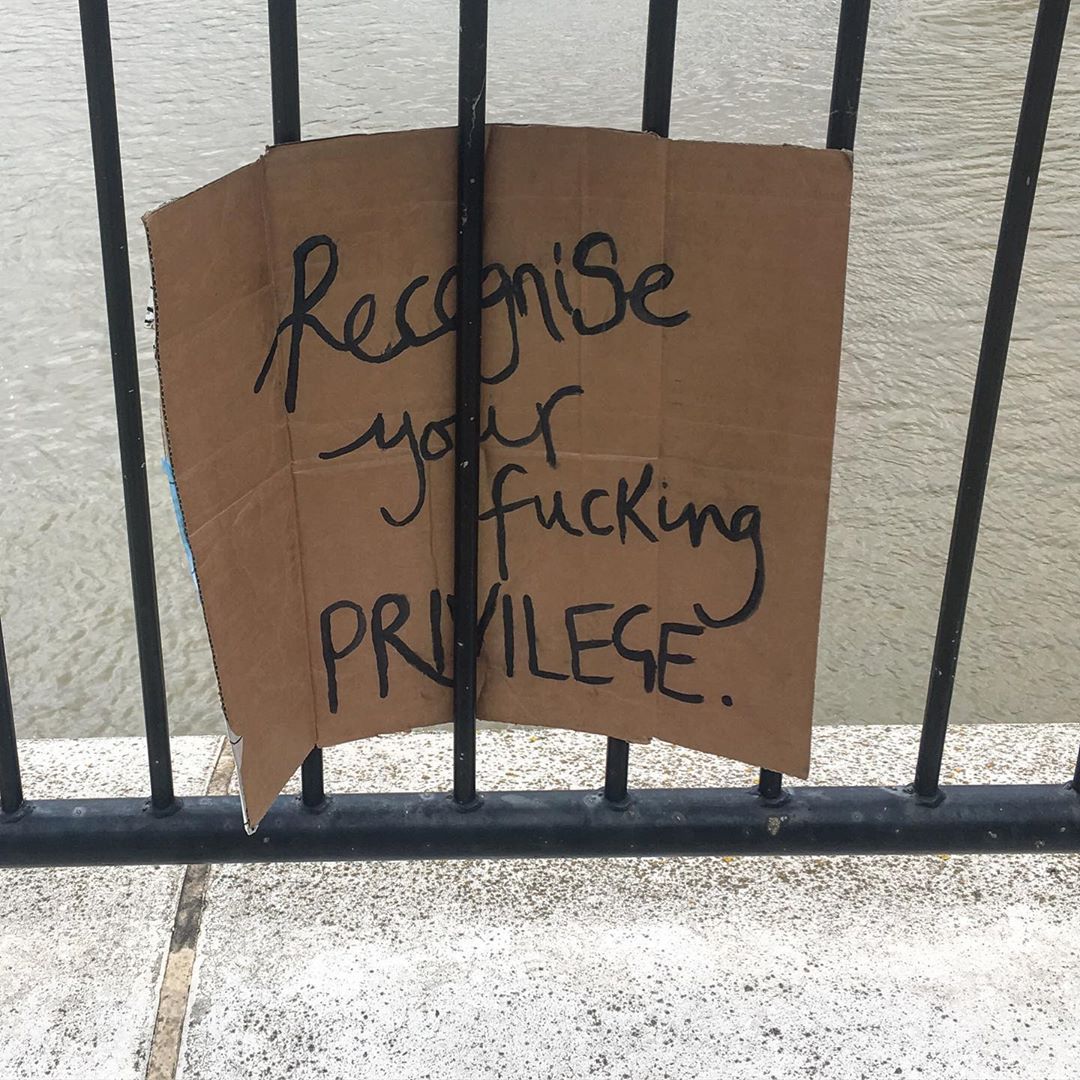 Recognise
your
fucking
PRIVILEGE.